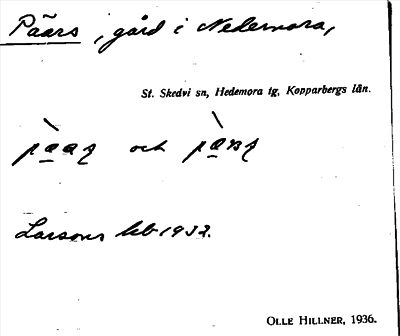 Päärs, gård i Nedernora,
St. Skedvi sn, Hedemora tg, Kopparbergs län.
och
Larsons hb 1932.
OLLE HILLNER, 1936.